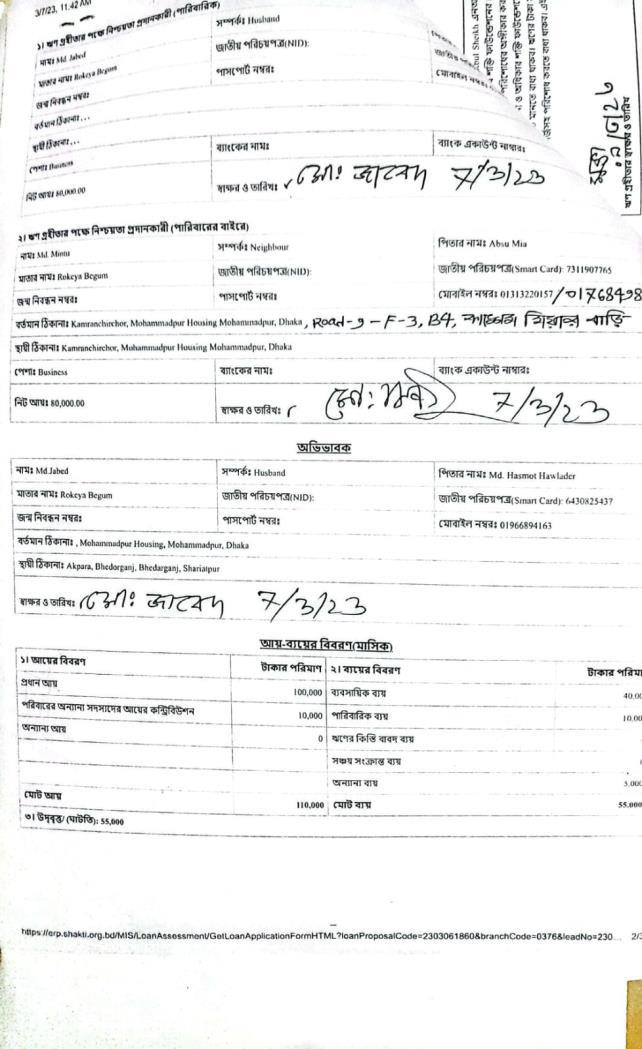 3/7/23, 11:42 AM
১। ঋণ গ্রহীতার পক্ষে নিশ্চয়তা প্রদানকারী (পারিবারিক)
নামঃ Md. Jabed সম্পর্কঃ Husband
মাতার নামঃ Rokeya Begum জাতীয় পরিচয়পত্র(NID):
জন্ম নিবন্ধন নম্বরঃ পাসপোর্ট নম্বরঃ মোবাইল নম্বরঃ
বর্তমান ঠিকানাঃ , , ,
স্থায়ী ঠিকানাঃ , , ,
পেশাঃ Business ব্যাংকের নামঃ ব্যাংক একাউন্ট নাম্বারঃ
নিট আয়ঃ 80,000.00 স্বাক্ষর ও তারিখঃ মোঃ জাবেদ 7/3/23
২। ঋণ গ্রহীতার পক্ষে নিশ্চয়তা প্রদানকারী (পরিবারের বাইরে)
নামঃ Md. Mintu সম্পর্কঃ Neighbour পিতার নামঃ Absu Mia
মাতার নামঃ Rokeya Begum জাতীয় পরিচয়পত্র(NID): জাতীয় পরিচয়পত্র(Smart Card): 7311907765
জন্ম নিবন্ধন নম্বরঃ পাসপোর্ট নম্বরঃ মোবাইল নম্বরঃ 01313220157/01768498
বর্তমান ঠিকানাঃ Kamranchirchor, Mohammadpur Housing Mohammadpur, Dhaka, Road-9-F-3, B4, মিয়ার বাড়ি
স্থায়ী ঠিকানাঃ Kamranchirchor, Mohammadpur Housing Mohammadpur, Dhaka
পেশাঃ Business ব্যাংকের নামঃ ব্যাংক একাউন্ট নাম্বারঃ
নিট আয়ঃ 80,000.00 স্বাক্ষর ও তারিখঃ মোঃ 7/3/23
অভিভাবক
নামঃ Md.Jabed সম্পর্কঃ Husband পিতার নামঃ Md. Hasmot Hawlader
মাতার নামঃ Rokeya Begum জাতীয় পরিচয়পত্র(NID): জাতীয় পরিচয়পত্র(Smart Card): 6430825437
জন্ম নিবন্ধন নম্বরঃ পাসপোর্ট নম্বরঃ মোবাইল নম্বরঃ 01966894163
বর্তমান ঠিকানাঃ , Mohammadpur Housing, Mohammadpur, Dhaka
স্থায়ী ঠিকানাঃ Akpara, Bhedorganj, Bhedarganj, Shariatpur
স্বাক্ষর ও তারিখঃ মোঃ জাবেদ 7/3/23
আয়-ব্যয়ের বিবরণ(মাসিক)
১। আয়ের বিবরণ টাকার পরিমাণ ২। ব্যয়ের বিবরণ টাকার পরিমা
প্রধান আয় 100,000 ব্যবসায়িক ব্যয় 40,00
পরিবারের অন্যান্য সদস্যদের আয়ের কন্ট্রিবিউশন 10,000 পারিবারিক ব্যয় 10,00
অন্যান্য আয় 0 ঋণের কিস্তি বাবদ ব্যয়
সঞ্চয় সংক্রান্ত ব্যয়
অন্যান্য ব্যয় 5,000
মোট আয় 110,000 মোট ব্যয় 55,000
৩। উদ্বৃত্ত/ (ঘাটতি): 55,000
https://erp.shakti.org.bd/MIS/LoanAssessment/GetLoanApplicationFormHTML?loanProposalCode=2303061860&branchCode=0376&leadNo=230... 2/3